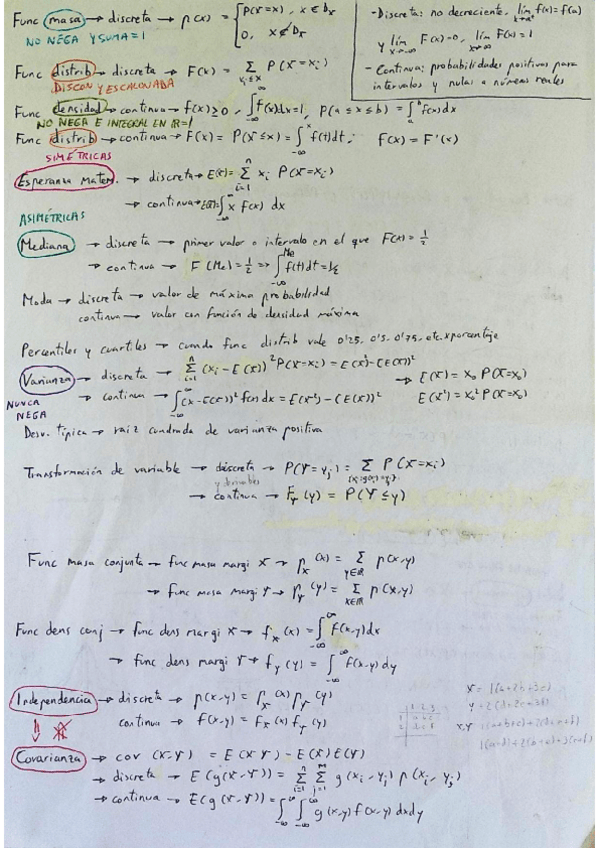 Func masa → discreta → p(x) = { P(X=x), x ∈ Dx
0, x ∉ Dx
NO NEGA Y SUMA=1
- Discreta: no decreciente, lim f(x)=f(a)
x→a⁺
y lim F(x)=0, lim F(x)=1
x→-∞ x→∞
- Continua: probabilidades positivas para
intervalos y nulas a números reales
Func distrib → discreta → F(x) = Σ P(X=xi)
xi≤x
DISCON Y ESCALONADA
Func densidad → continua → f(x)≥0, ∫f(x)dx=1, P(a≤x≤b) = ∫f(x)dx
NO NEGA E INTEGRAL EN ℝ=1
Func distrib → continua → F(x) = P(X≤x) = ∫f(t)dt, f(x) = F'(x)
SIMÉTRICAS
Esperanza matem. → discreta → E(X)= Σ xi P(X=xi)
→ continua → E(X)=∫ x f(x) dx
ASIMÉTRICAS
Mediana → discreta → primer valor o intervalo en el que F(x) = 1/2
→ continua → F(Me) = 1/2 => ∫f(t)dt = 1/2
Moda → discreta → valor de máxima probabilidad
continua → valor con función de densidad máxima
Percentiles y cuartiles → cuando func distrib vale 0'25, 0'5, 0'75, etc. x porcentaje
Varianza → discreta → Σ (xi - E(X))² P(X=xi) = E(X²) - (E(X))² → E(X) = x₀ P(X=x₀)
→ continua → ∫(x-E(X))² f(x)dx = E(X²) - (E(X))² E(X²) = x₀² P(X=x₀)
NUNCA
NEGA
Desv. típica → raíz cuadrada de varianza positiva
Transformación de variable → discreta → P(Y=yj) = Σ P(X=xi)
→ continua → F_Y(y) = P(Y≤y)
Func masa conjunta → func masa margi X → p_X(x) = Σ p(x,y)
y∈ℝ
→ func masa margi Y → p_Y(y) = Σ p(x,y)
x∈ℝ
Func dens conj → func dens margi X → f_X(x) = ∫ f(x,y)dx
→ func dens margi Y → f_Y(y) = ∫ f(x,y)dy
Independencia → discreta → p(x,y) = p_X(x) p_Y(y)
continua → f(x,y) = f_X(x) f_Y(y)
Covarianza → cov (X,Y) = E(XY) - E(X)E(Y)
→ discreta → E(g(X,Y)) = Σ Σ g(xi,yj) p(xi,yj)
→ continua → E(g(X,Y)) = ∫∫ g(x,y) f(x,y) dxdy